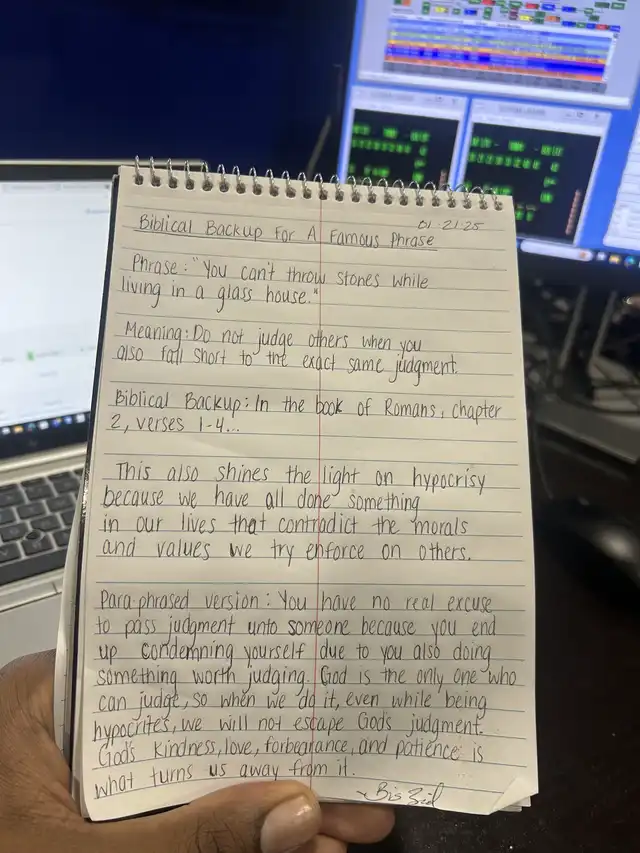 01-21-25
Biblical Backup For A Famous Phrase
Phrase: "You can't throw stones while
living in a glass house."
Meaning: Do not judge others when you
also fall short to the exact same judgment.
Biblical Backup: In the book of Romans, chapter
2, verses 1-4...
This also shines the light on hypocrisy
because we have all done something
in our lives that contradict the morals
and values we try enforce on others.
Paraphrased version: You have no real excuse
to pass judgment unto someone because you end
up condemning yourself due to you also doing
something worth judging. God is the only one who
can judge, so when we do it, even while being
hypocrites, we will not escape God's judgment.
God's kindness, love, forbearance, and patience is
what turns us away from it.